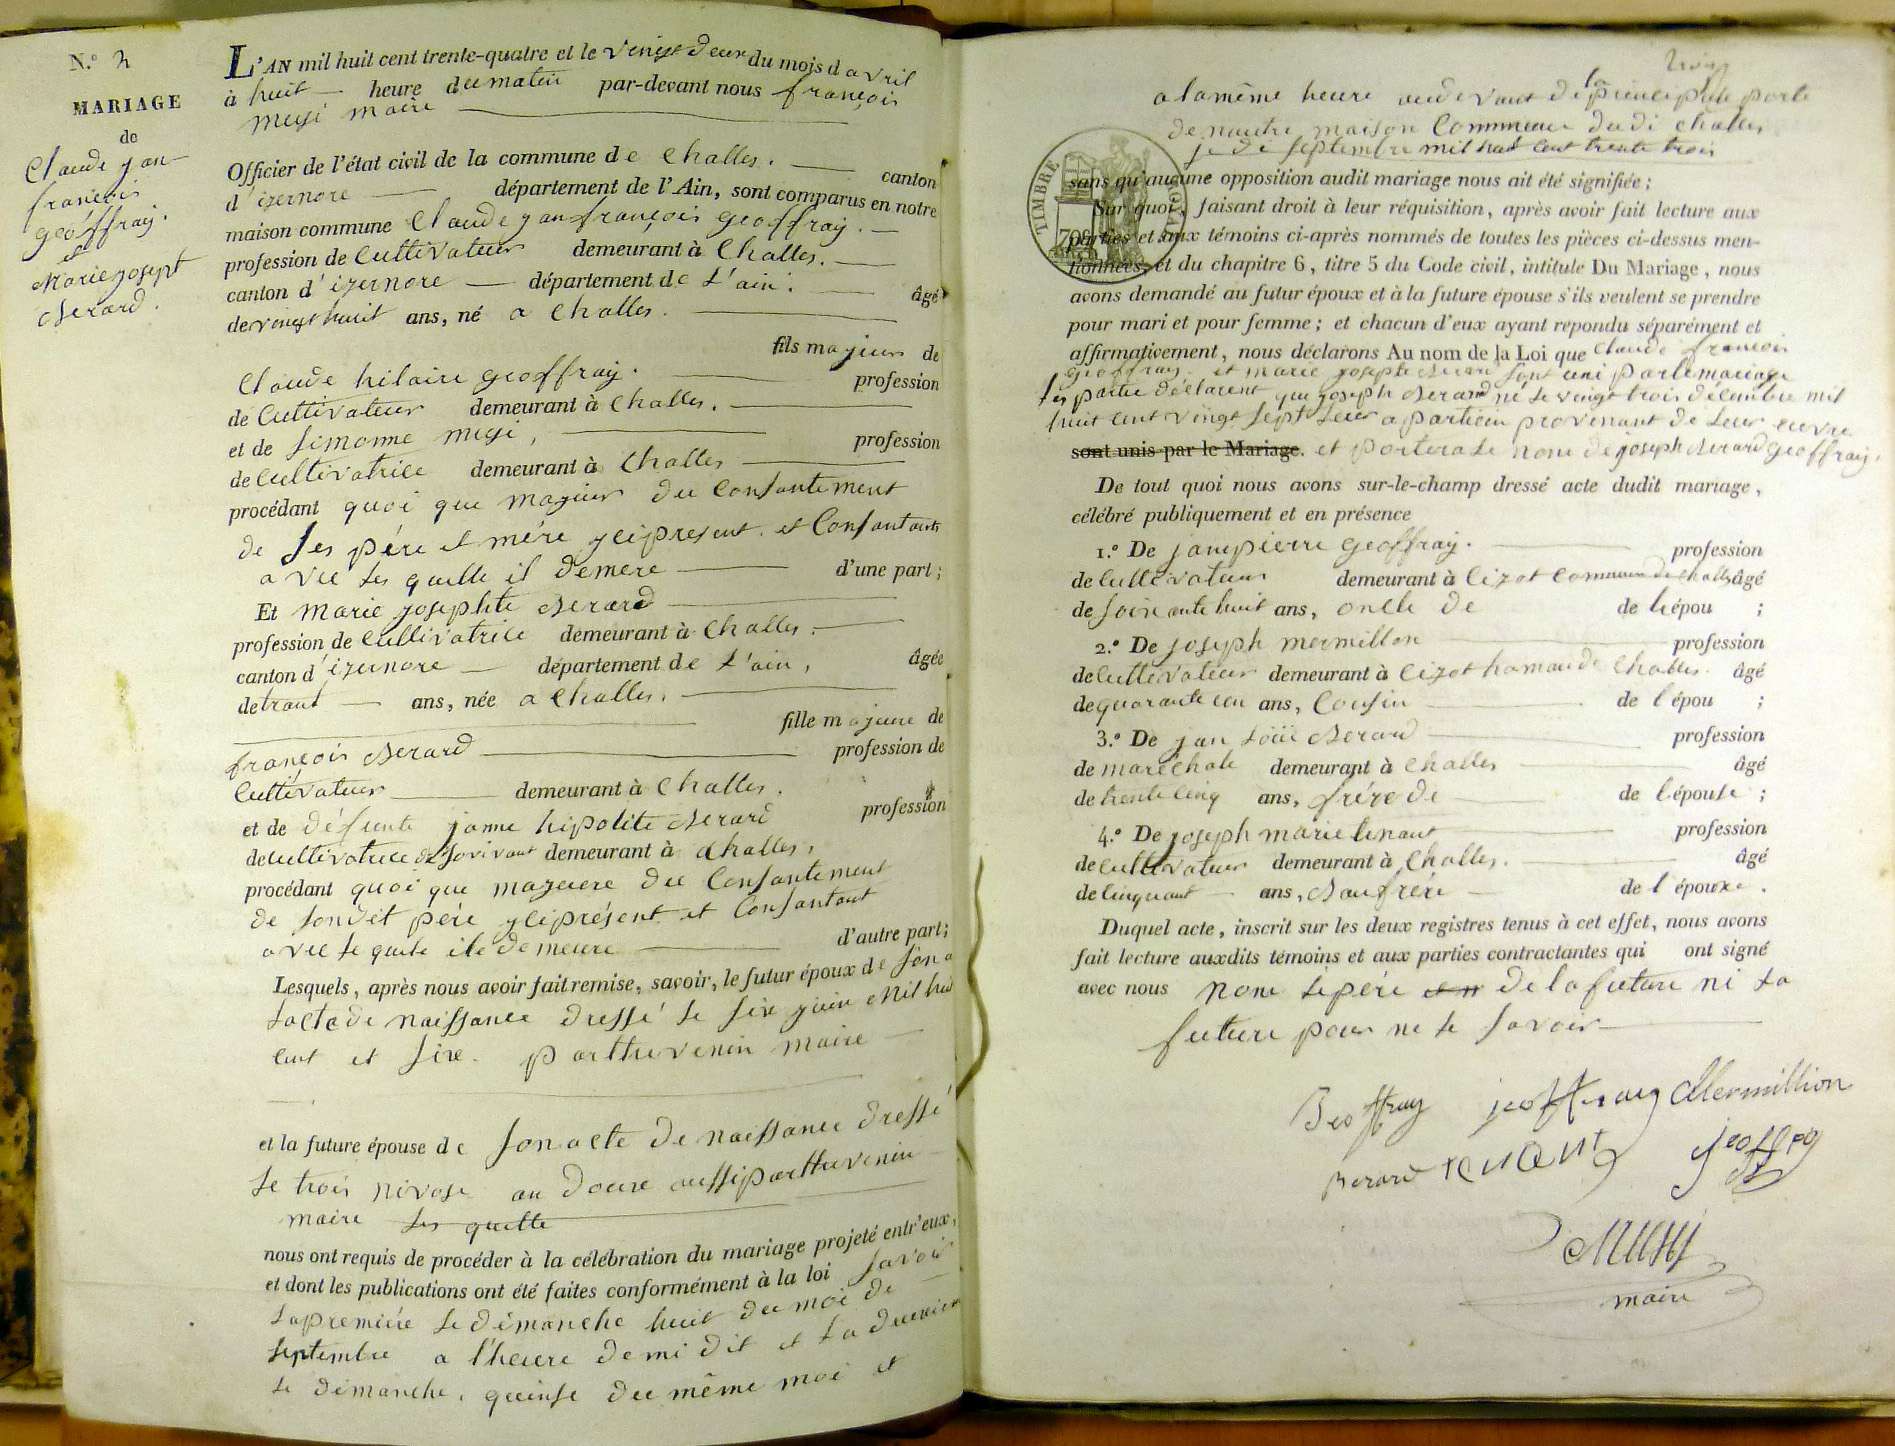 N.° 2
MARIAGE
de
Claude jan
françois
geoffray.
et
Marie josept
Berard.
L'AN mil huit cent trente-quatre et le vingt deux du mois d avril
à huit heure du matin par-devant nous françois
musi maire
Officier de l'état civil de la commune de Challes. canton
d'izernore département de l'Ain, sont comparus en notre
maison commune Claude jan françois geoffray.
profession de Cultivateur demeurant à Challes.
canton d'izernore département de L'ain. âgé
de vingt huit ans, né a Challes.
fils majeur de
Claude hilaire geoffray. profession
de Cultivateur demeurant à Challes.
et de simonne musi, profession
de Cultivatrice demeurant à Challes
procédant quoi que majeur du Consantement
de ses père et mère yci present. et Consantants
avec les quelle il demere d'une part;
Et Marie josephte Berard
profession de Cultivatrice demeurant à Challes.
canton d'izernore département de L'ain, âgée
de trant ans, née a Challes.
fille majeure de
françois Berard profession de
Cultivateur demeurant à Challes.
et de défunte janne hipolite Berard profession
de cultivatrice de sovivant demeurant à Challes,
procédant quoi que majeure du Consantement
de sondit père yci présent et Consantant
avec le quele ile demeure d'autre part;
Lesquels, après nous avoir fait remise, savoir, le futur époux de son a
Lacte de naissance dressé le six juin Mil hui
cent et six. par thevenin maire
et la future épouse de son acte de naissance dressé
Le trois nivose an douze aussi par thevenin
maire les quelle
nous ont requis de procéder à la célébration du mariage projeté entr'eux,
et dont les publications ont été faites conformément à la loi savoir
La premiére le dimanche huit du moi de
septembre a l'heure de mi dit et La deuxiem
le dimanche. quinse du même moi et
trois
a la même heure audevant de la principale porte
de nautre maison Commune dudi challes
je de septembre mil huit cent trente trois
TIMBRE ROYAL
70c
sans qu'aucune opposition audit mariage nous ait été signifiée;
Sur quoi, faisant droit à leur réquisition, après avoir fait lecture aux
parties et aux témoins ci-après nommés de toutes les pièces ci-dessus men-
tionnées, et du chapitre 6, titre 5 du Code civil, intitule Du Mariage, nous
avons demandé au futur époux et à la future épouse s'ils veulent se prendre
pour mari et pour femme; et chacun d'eux ayant repondu séparément et
affirmativement, nous déclarons Au nom de la Loi que Claude françois
geoffray. et marie josephte Berard sont uni par le mariage
Les partie déclarent que joseph Berard né le vingt trois décembre mil
huit cent vingt sept leur apartien provenant de Leur euvre
sont unis par le Mariage. et portera le nom de joseph Berard geoffray.
De tout quoi nous avons sur-le-champ dressé acte dudit mariage,
célébré publiquement et en présence
1.° De janpierre geoffray. profession
de Cultivateur demeurant à Cizot Commune de Challes âgé
de soixante huit ans, oncle de de l'épou ;
2.° De joseph mermillon profession
de Cultivateur demeurant à Cizot hamau de Challes. âgé
de quarante un ans, Cousin de l'épou ;
3.° De jan Loüi Berard profession
de maréchale demeurant à Challes âgé
de trente cinq ans, frére de de l'épouse ;
4.° De joseph marie tenant profession
de cultivateur demeurant à Challes. âgé
de cinquant ans, Baufrére de l'épouxe.
Duquel acte, inscrit sur les deux registres tenus à cet effet, nous avons
fait lecture auxdits témoins et aux parties contractantes qui ont signé
avec nous non le péré de la future ni La
future pour ne le savoir
Geoffray jeoffray Mermillion
Berard tenant jeoffray
Musi
maire